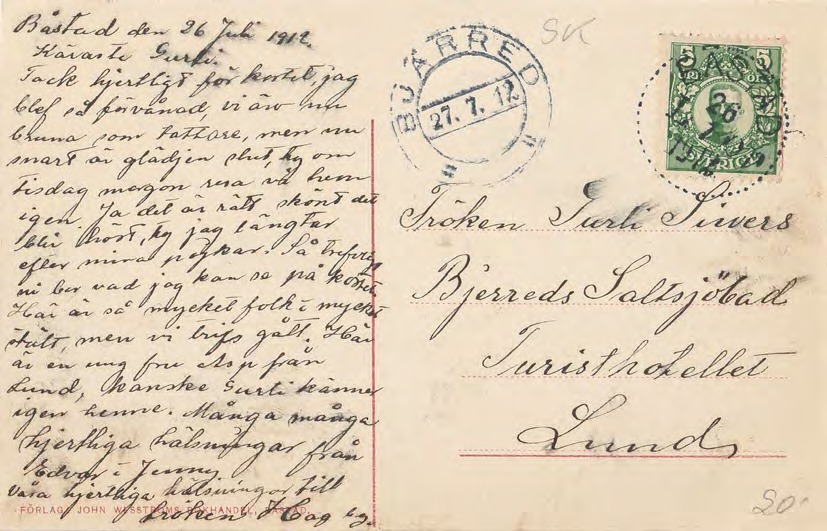 Båstad den 26 Juli 1912.
Käraste Gurli.
Tack hjertligt för kortet, jag
blef så förvånad, vi äro nu
bruna som tattare, men nu
snart är glädjen slut, ty om
tisdag morgon resa vi hem
igen. Ja det är rätt skönt det
blir kört, ty jag längtar
efter mina pojkar. Så trefligt
ni bor vad jag kan se på kortet.
Här är så mycket folk i mycket
ståt, men vi trifs gått. Här
är en ung fru Asp från
Lund, kanske Gurli känner
igen henne. Många många
hjertliga hälsningar från
Edvar i Jenny
våra hjertliga hälsningar till
fröken Hag
FÖRLAG: JOHN BOKHANDEL, BÅSTAD.
SK
BJÄRRED
27. 7. 12
5 5
ÖRE
SVERIGE
BÅSTAD
26
7
1912
Fröken Gurli Siwers
Bjerreds Saltsjöbad
Turisthotellet
Lund
20:-